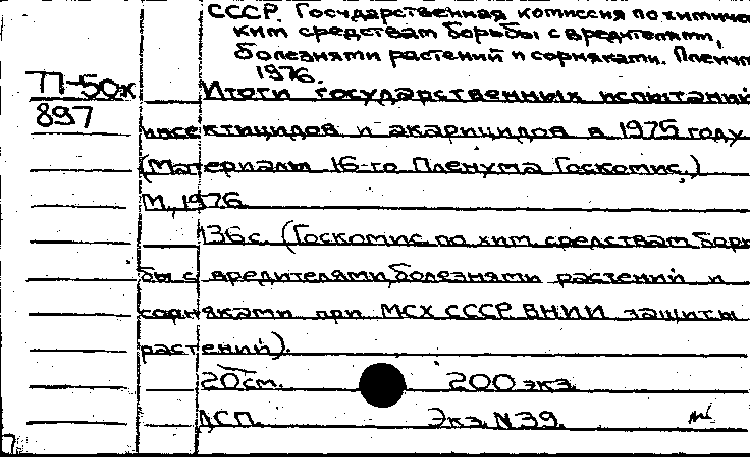 СССР. Государственная комиссия по химичес
ким средствам борьбы с вредителями,
болезнями растений и сорняками. Пленум
1976.
П-50ж
897
Итоги государственных испытаний
инсектицидов и акарицидов в 1975 году
(Материалы 16-го Пленума Госкомис.)
М., 1976
136 с. (Госкомис. по хим средствам борь
бы с вредителями, болезнями растений и
сорняками при МСХ СССР. ВНИИ защиты
растений).
20 см. 200 экз.
ДСП. Экз. N 39.
7